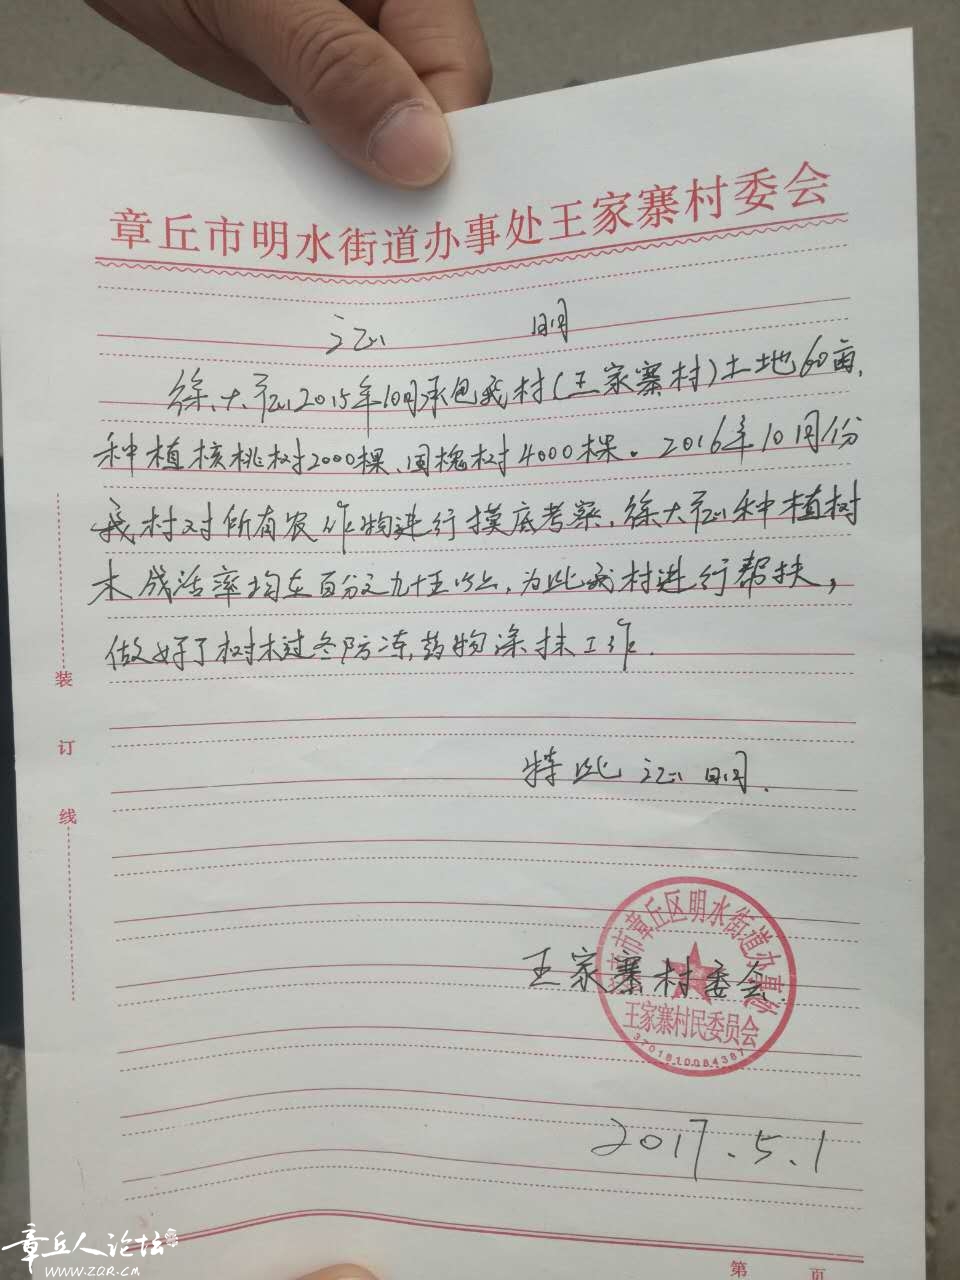 章丘市明水街道办事处王家寨村委会
证 明
徐大征2015年10月承包我村(王家寨村)土地60亩,
种植核桃树2000棵、国槐树4000株。2016年10月份
我村对所有农作物进行摸底考察,徐大征种植树
木成活率均在百分之九十五以上,为此我村进行帮扶,
做好了树木过冬防冻,药物涂抹工作.
特此证明.
王家寨村委会
市章丘区明水街道办事处
王家寨村民委员会
3701810084387
2017.5.1
装
订
线
第 页
章丘人论坛
WWW.ZQR.CM